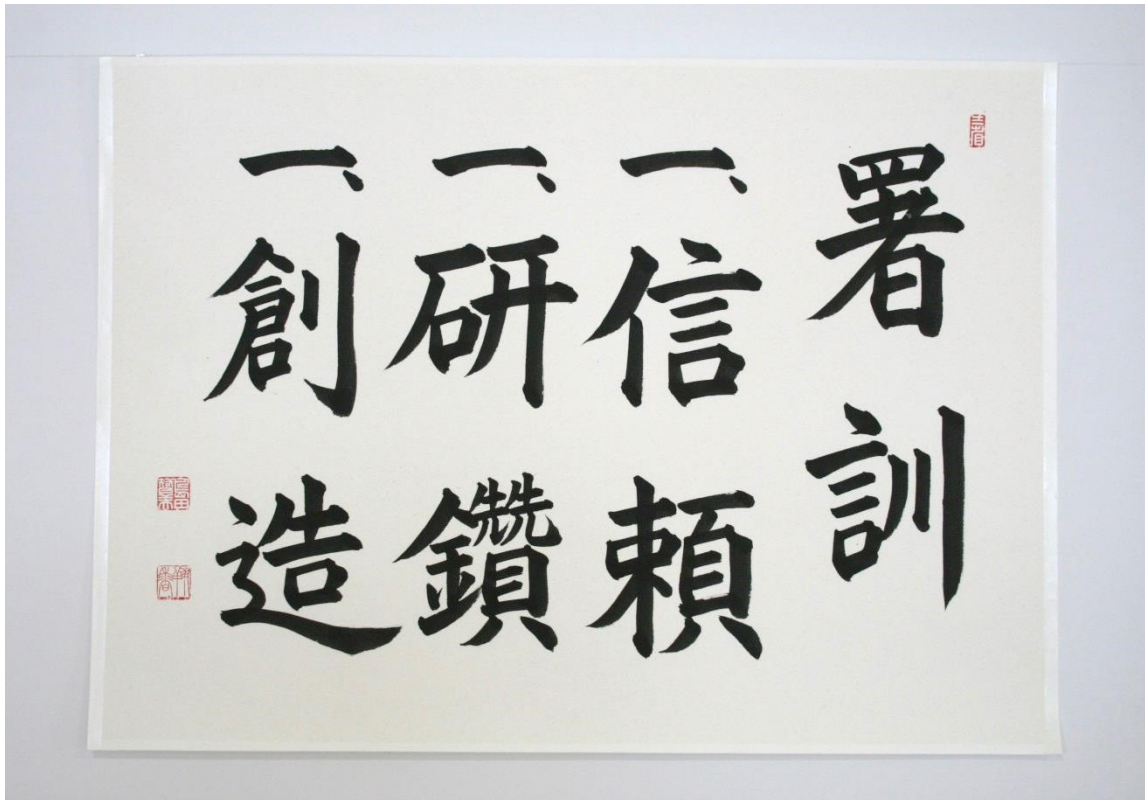 署訓
一、信頼
一、研鑽
一、創造